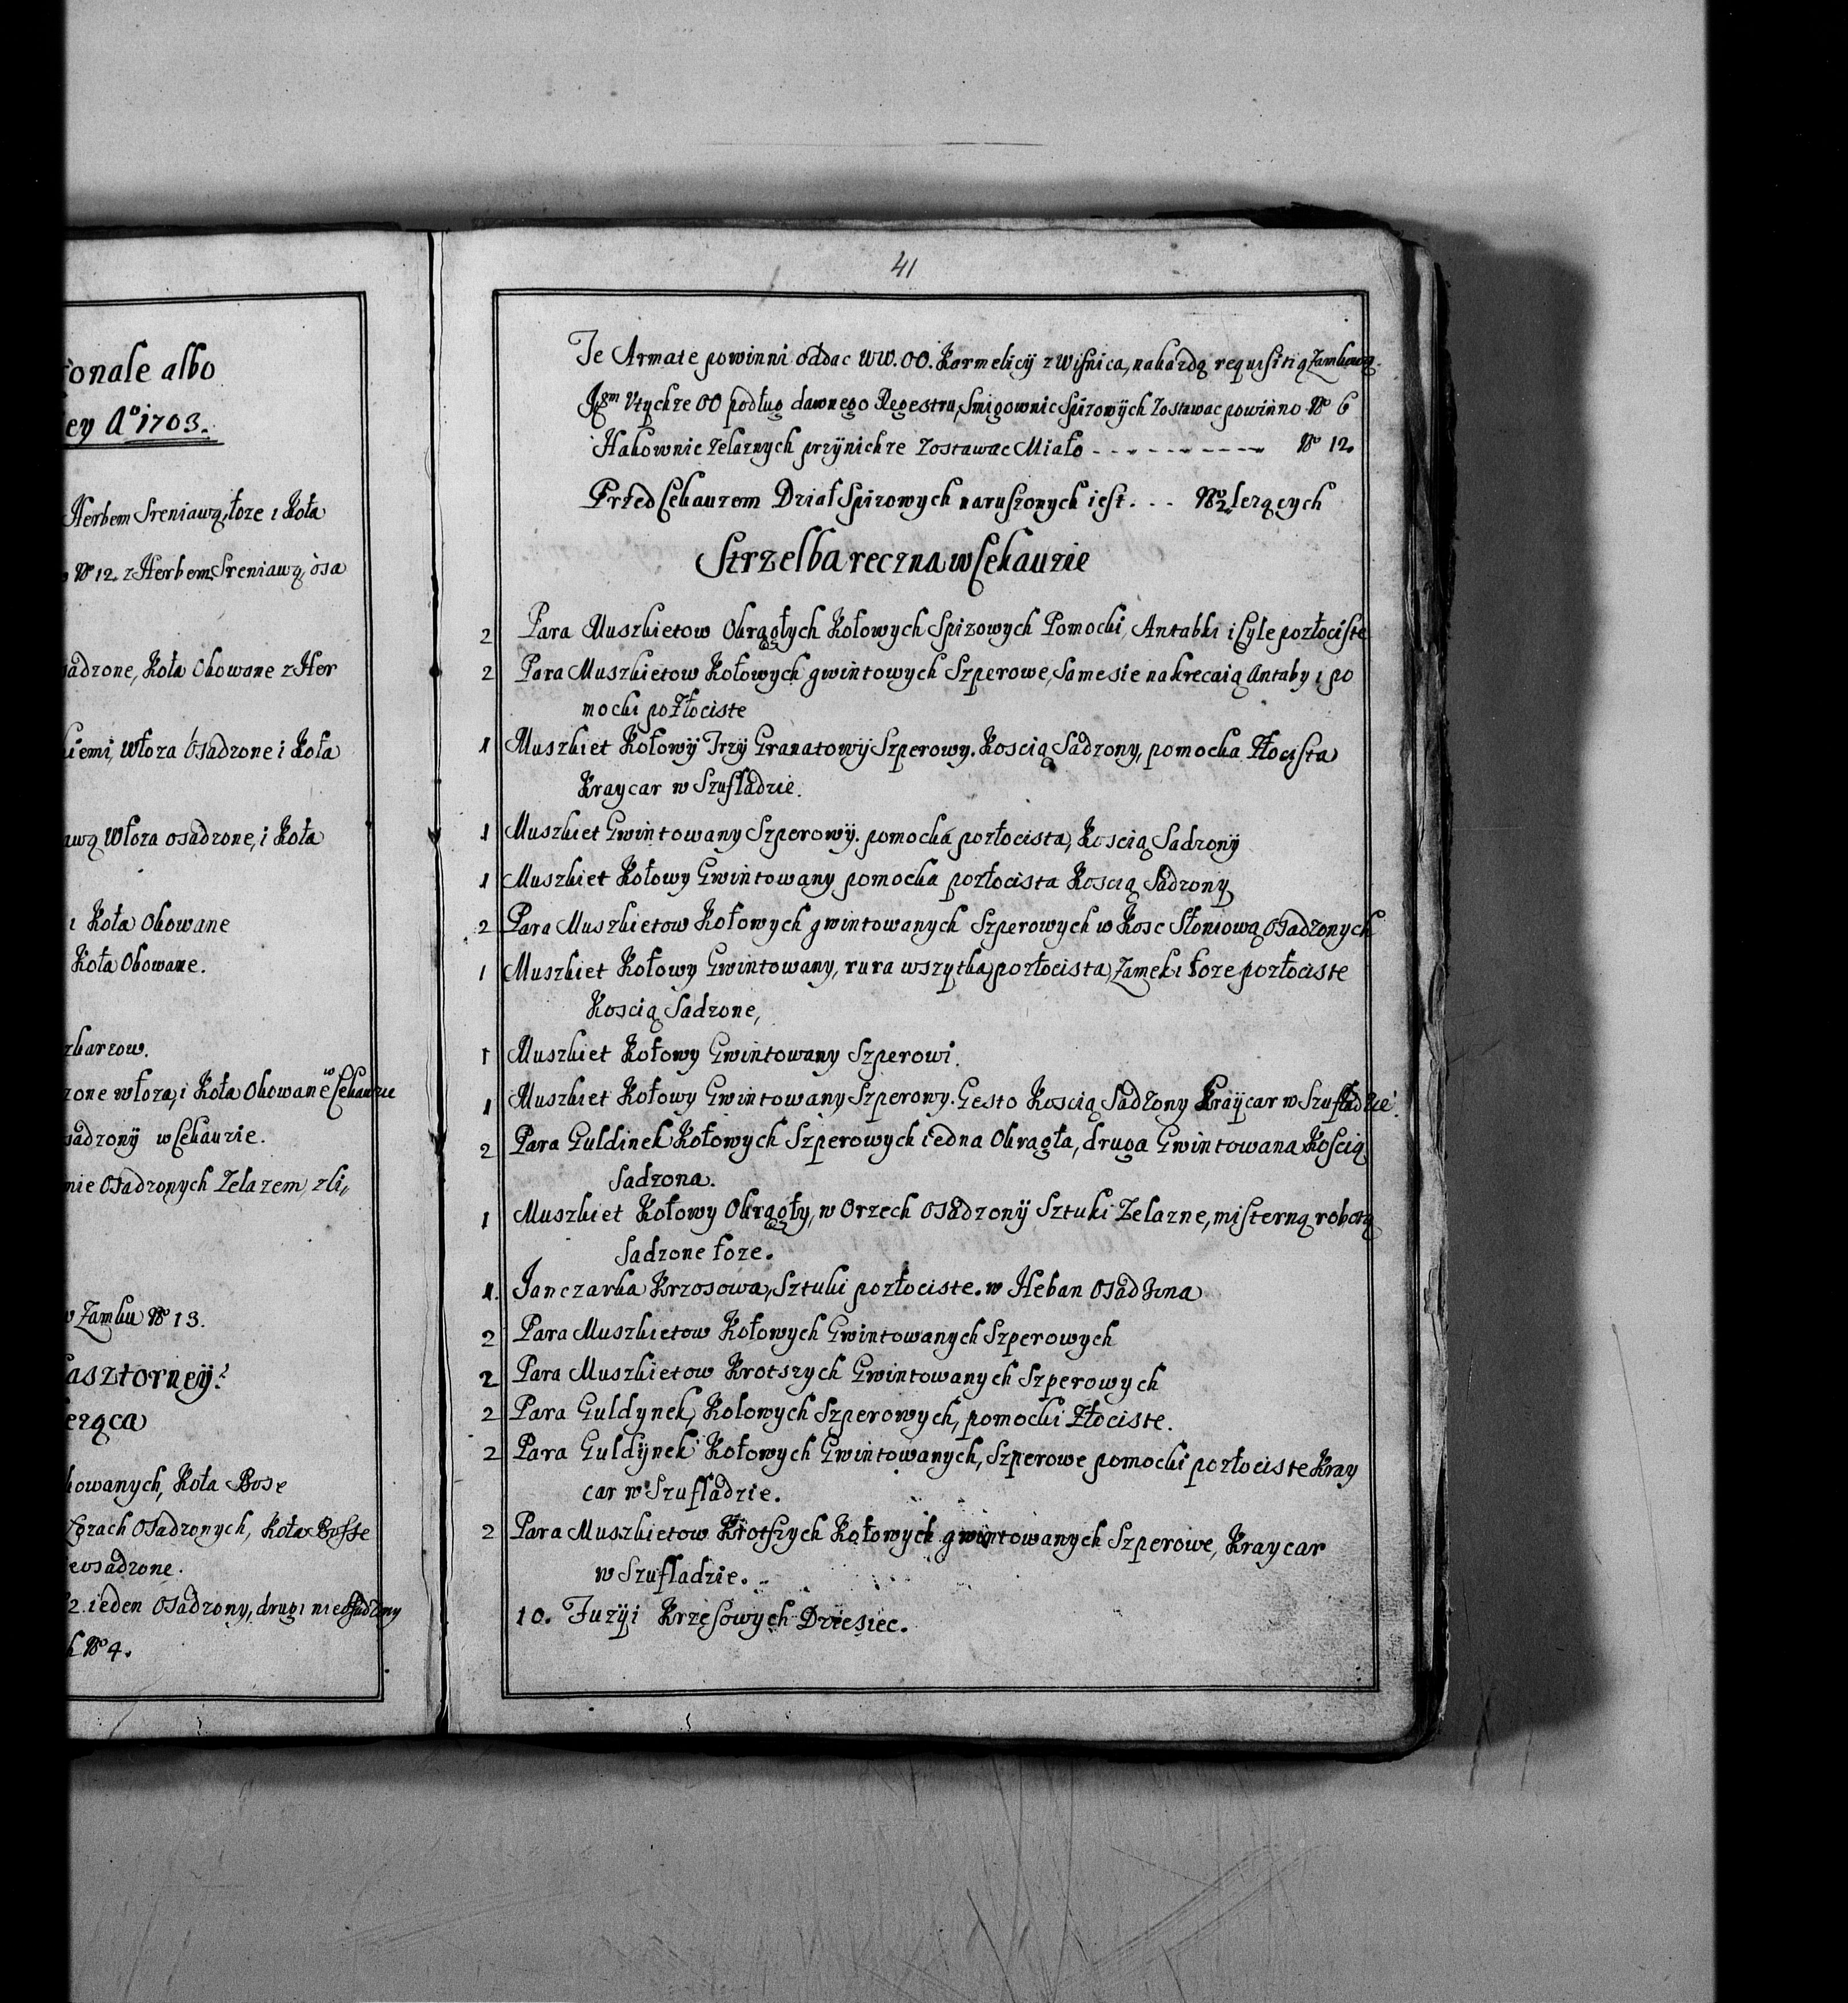 fonale albo
ey Aº 1703.
Herbem Sreniawą, łoze ı Koła
Nº 12. z Herbem Sreniawą, osa
sadzone, Koła Okowane z Her
kiemi, w łoza Osadzone i Koła
awą w łoza osadzone, i Koła
ı Koła Okowane
Koła Okowane.
zkarzow.
zone w łoza, i Koła Okowane w Cekauzie
sadzonÿ w Cekauzie.
nie Osadzonych Zelazem, zli„
w Zamku Nº 13.
asztorneÿ
leząca
kowanych, Koła Bose
Łozach Osadzonych, Koła Bosse
ieosadzone.
2. ieden Osadzony, drugı nie Osadzony
k Nº 4.
41
Te Armate powinni oddac WW. OO. Karmelicÿ z Wisnica, na kazdą requisitią Zamkową.
Jtem U tychze OO podług dawnego Regestru, Smigownic Spizowÿch Zostawac powinno Nº 6
Hakownic zelaznych przÿ nichze zostawac Miało - - - - - - - - - - Nº 12.
Przed Cekauzem Dział Spizowych naruszonych iest. . . Nº 2. lezących
Strzelba reczna w Cekauzie
2 Para Muszkietow Okrągłych Kołowych Spizowych Pomocki, Antabki i Cyle pozłociste
2 Para Muszkietow Kołowych gwintowych Szperowe, Same sie nakrecaią Antaby ı po
mocki pozłociste
1 Muszkiet Kołowÿ Trzÿ Granatowÿ Szperowy. Koscią Sadzony, pomocka Złocista
Kraycar w Szufladzie.
1 Muszkiet Gwintowany Szperowÿ. pomocka pozłocista, Koscią Sadzonÿ
1 Muszkiet Kołowy Gwintowany pomocka pozłocista Koscią Sadzony
2 Para Muszkietow Kołowych gwintowanych Szperowych w Kosc Słoniową Osadzonych
1 Muszkiet Kołowy Gwintowany, rura wszytka pozłocista, Zamek ı łoze pozłociste
Koscią Sadzone,
1 Muszkiet Kołowy Gwintowany Szperowi.
1 Muszkiet Kołowy Gwintowany Szperowy. Gesto Koscią Sadzony Kraÿcar w Szufladzie.
2 Para Guldinek Kołowych Szperowych iedna Okragła, druga Gwintowana Koscią
Sadzona.
1 Muszkiet Kołowy Okrągły, w Orzech Osadzonÿ Sztuki Zelazne, misterną robotą
Sadzone łoze.
1. Janczarka Krzosowa, Sztuki pozłociste. w Heban Osadzona
2 Para Muszkietow Kołowych Gwintowanych Szperowych
2 Para Muszkietow Krotszych Gwintowanych Szperowych
2 Para Guldynek, Kolowych Szperowych, pomocki Złociste.
2 Para Guldÿnek Kołowych Gwintowanych, Szperowe pomocki pozłociste Kray
car w Szufladzie.
2 Para Muszkietow Krotszych Kołowych gwintowanych Szperowe, Kraycar
w Szufladzie.
10. Fuzÿi Krzesowych Dziesiec.